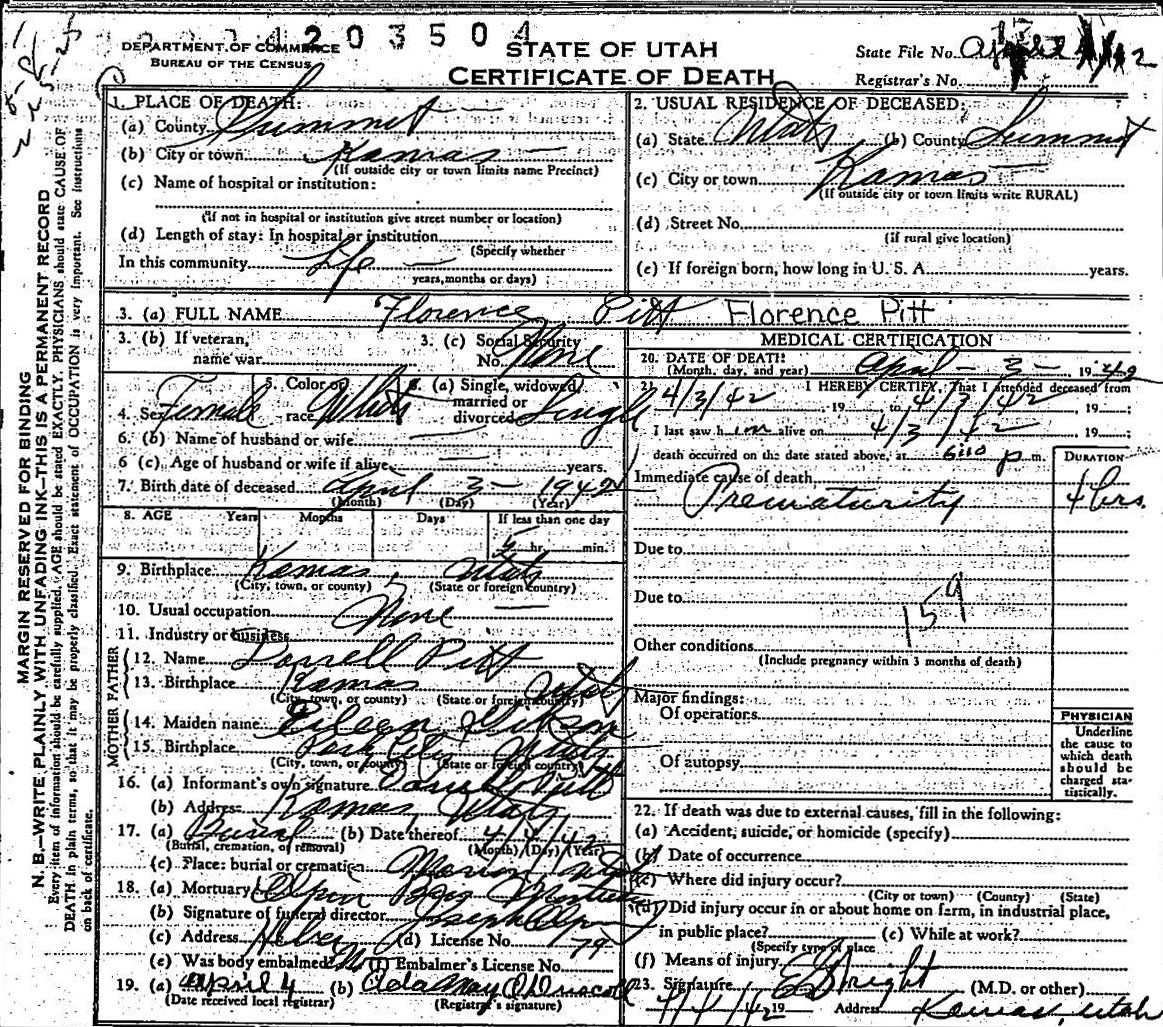 4203504
DEPARTMENT OF COMMERCE
BUREAU OF THE CENSUS
STATE OF UTAH
CERTIFICATE OF DEATH
State File No.
Registrar's No.
MARGIN RESERVED FOR BINDING
N. B.—WRITE PLAINLY, WITH UNFADING INK—THIS IS A PERMANENT RECORD
Every item of information should be carefully supplied. AGE should be stated EXACTLY. PHYSICIANS should state CAUSE OF
DEATH in plain terms, so that it may be properly classified. Exact statement of OCCUPATION is very important. See instructions
on back of certificate.
1. PLACE OF DEATH:
(a) County Summit
(b) City or town Kamas
(If outside city or town limits name Precinct)
(c) Name of hospital or institution:
(If not in hospital or institution give street number or location)
(d) Length of stay: In hospital or institution
(Specify whether
In this community Life
years, months or days)
2. USUAL RESIDENCE OF DECEASED:
(a) State Utah (b) County Summit
(c) City or town Kamas
(If outside city or town limits write RURAL)
(d) Street No.
(if rural give location)
(e) If foreign born, how long in U. S. A. years.
3. (a) FULL NAME Florence Pitt Florence Pitt
3. (b) If veteran,
name war
3. (c) Social Security
No. None
4. Sex Female
5. Color or
race White
6. (a) Single, widowed,
married or
divorced Single
6. (b) Name of husband or wife
6 (c). Age of husband or wife if alive years.
7. Birth date of deceased April 3 - 1942
(Month) (Day) (Year)
8. AGE Years Months Days If less than one day
hr. min.
9. Birthplace Kamas, Utah
(City, town, or county) (State or foreign country)
10. Usual occupation None
11. Industry or business
FATHER
12. Name Darrell Pitt
13. Birthplace Kamas Utah
(City, town, or county) (State or foreign country)
MOTHER
14. Maiden name Eileen
15. Birthplace Park City Utah
(City, town, or county) (State or foreign country)
16. (a) Informant's own signature Darrell Pitt
(b) Address Kamas Utah
17. (a) Burial (b) Date thereof 4/4/42
(Burial, cremation, or removal) (Month) (Day) (Year)
(c) Place: burial or cremation Marion Utah
18. (a) Mortuary
(b) Signature of funeral director Joseph
(c) Address Heber (d) License No. 79
(e) Was body embalmed? No (f) Embalmer's License No.
19. (a) April 4 (b) Ada May O'Driscoll
(Date received local registrar) (Registrar's signature)
MEDICAL CERTIFICATION
20. DATE OF DEATH: April - 3 - 1942
(Month, day, and year)
21. I HEREBY CERTIFY, That I attended deceased from
4/3/42 19 to 4/3/42 19 ;
I last saw h im alive on 4/3/42 19 ;
death occurred on the date stated above, at 6:10 p m.
DURATION
Immediate cause of death
Prematurity 4 hrs.
Due to
Due to
159
Other conditions
(Include pregnancy within 3 months of death)
Major findings:
Of operations
Of autopsy
PHYSICIAN
Underline
the cause to
which death
should be
charged sta-
tistically.
22. If death was due to external causes, fill in the following:
(a) Accident, suicide, or homicide (specify)
(b) Date of occurrence
(c) Where did injury occur?
(City or town) (County) (State)
(d) Did injury occur in or about home on farm, in industrial place,
in public place? (e) While at work?
(Specify type of place
(f) Means of injury
23. Signature (M.D. or other)
4/4/42 19 Address Kamas, Utah